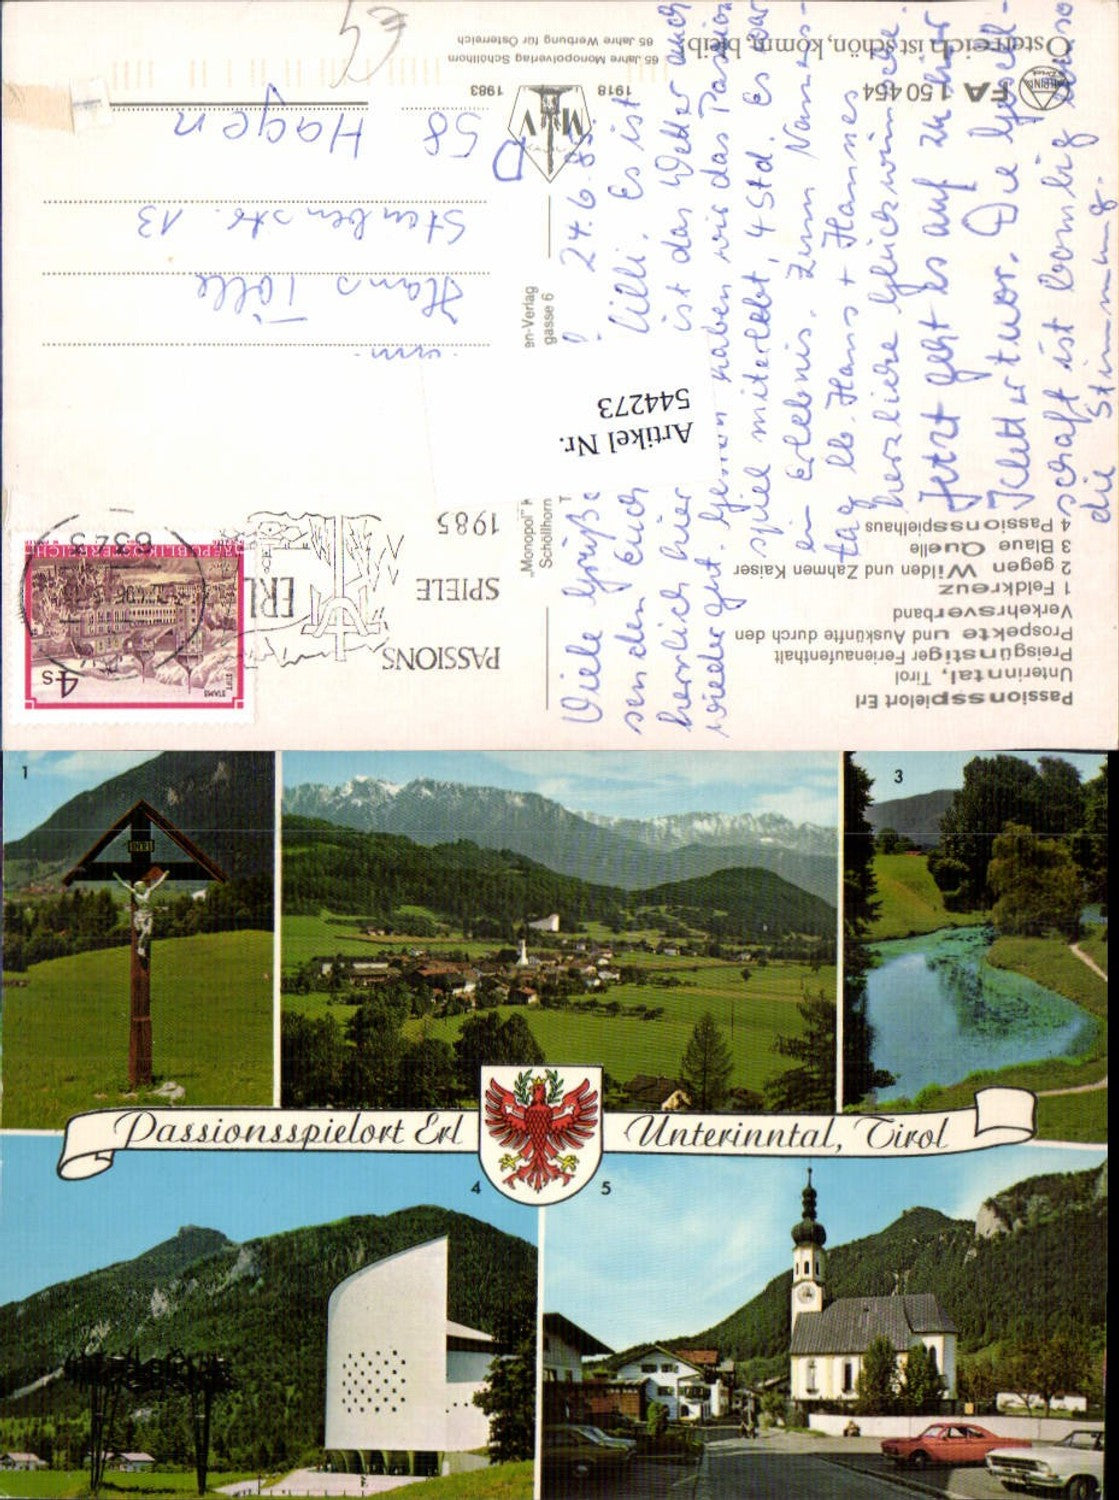 Österreich ist schön, komm, bleib
FA 150454
65 Jahre Monopolverlag Schöllhorn
65 Jahre Werbung für Österreich
1918 1983
M V
Passionsspielort Erl
Unterinntal, Tirol
Preisgünstiger Ferienaufenthalt
Prospekte und Auskünfte durch den
Verkehrsverband
1 Feldkreuz
2 gegen Wilden und Zahmen Kaiser
3 Blaue Quelle
4 Passionsspielhaus
24.6.85
Viele Grüße
senden Euch Uli. Es ist
herrlich hier ist das Wetter auch
wieder gut. Gestern haben wir das Passions-
spiel miterlebt, 4 Std. Es war
ein Erlebnis. Zum Namens-
tag lb. Hans + Hannes
herzliche Glückwünsche.
Jetzt geht es auf zu ihr
Die Gesell-
schaft ist bombig
die Stimmung.
Artikel Nr.
544273
"Monopol"
Schöllhorn
en-Verlag
gasse 6
PASSIONS
SPIELE
1985
ERL
6343
REPUBLIK ÖSTERREICH
STIFT
STAMS
4 S
Hans Tölle
Steubenstr. 13
D 58 Hagen
€4
1
3
INRI
Passionsspielort Erl Unterinntal, Tirol
4
5